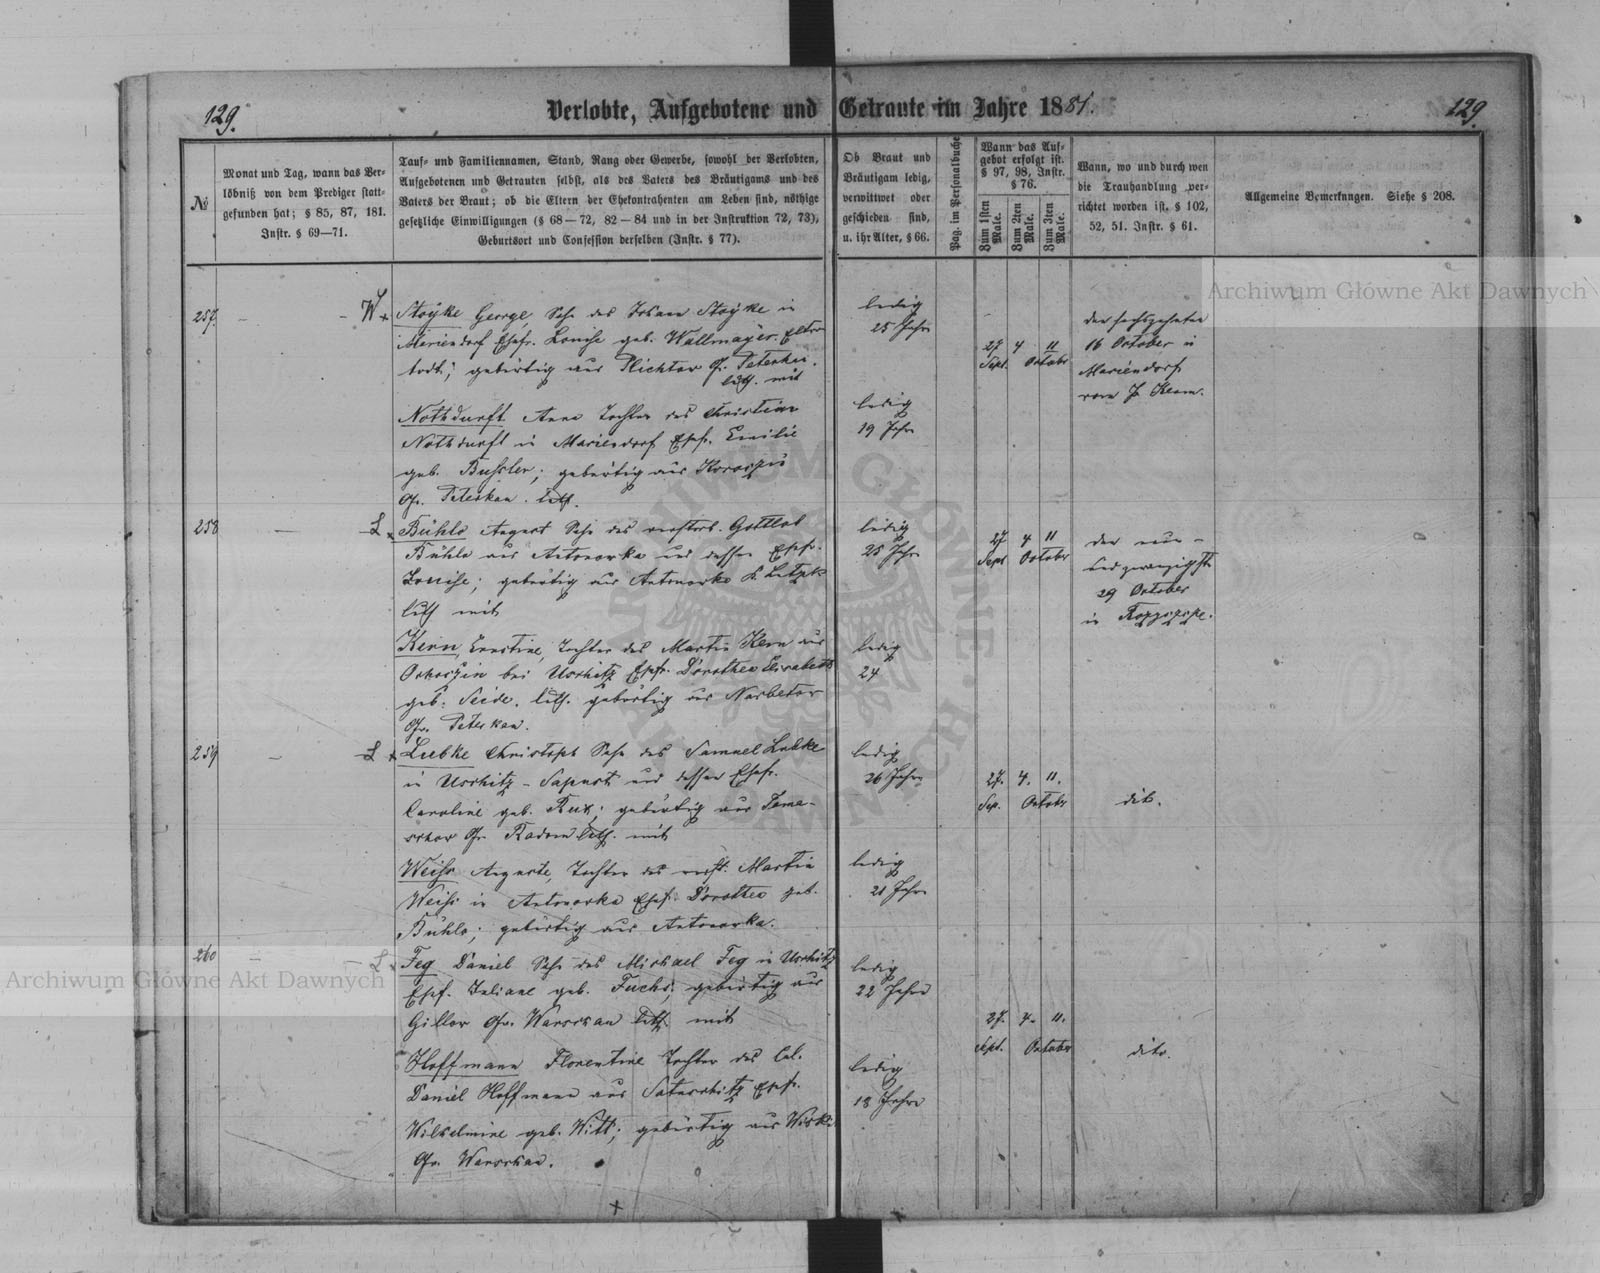 129.
Verlobte, Aufgebotene und Getraute im Jahre 1881.
129.
№
Monat und Tag, wann das Ver-
löbniß von dem Prediger statt-
gefunden hat; § 85, 87, 181.
Instr. § 69—71.
Tauf- und Familiennamen, Stand, Rang oder Gewerbe, sowohl der Verlobten,
Aufgebotenen und Getrauten selbst, als des Vaters des Bräutigams und des
Vaters der Braut; ob die Eltern der Ehekontrahenten am Leben sind, nöthige
gesetzliche Einwilligungen (§ 68—72, 82—84 und in der Instruktion 72, 73),
Geburtsort und Confession derselben (Instr. § 77).
Ob Braut und
Bräutigam ledig,
verwittwet oder
geschieden sind,
u. ihr Alter, § 66.
Pag. im Personalbuche
Wann das Auf-
gebot erfolgt ist.
§ 97, 98, Instr.
§ 76.
Zum 1sten
Male.
Zum 2ten
Male.
Zum 3ten
Male.
Wann, wo und durch wen
die Trauhandlung ver-
richtet worden ist, § 102,
52, 51. Instr. § 61.
Allgemeine Bemerkungen. Siehe § 208.
257.
W
Stoÿke George, Sohn des Stoÿke in
Mariendorf Ehefr. Louise geb. Wallmayer. Eltern
todt; gebürtig aus Plichtow G. Peterkau.
luth. mit
ledig
25 Jahr
27 4 11
Sept. October
der sechszehnte
16 October in
Mariendorf
vom
Nothdurft Anna Tochter des Christian
Nothdurft in Mariendorf Ehefr. Emilie
geb. Bussler; gebürtig aus
Gv. Peterkau. luth.
ledig
19 Jahr
258
L
Bühlo August Sohn des verstorb. Gottlob
Bühlo aus Antonowka und dessen Ehefr.
Louise; gebürtig aus Antonowka
luth mit
ledig
25 Jahr
27 4 11
Sept October
der neun-
und zwanzigste
29 October
in Rozyszcze.
Kern, Ernestine, Tochter des Martin Kern aus
bei Uschitz Ehefr. Dorothea Elisabeth
geb. Seide. luth. gebürtig aus
Gv. Peterkau.
ledig
24
259
L
Luebke Christoph Sohn des Samuel Lubke
in Uschitz - und dessen Ehefr.
Caroline geb. gebürtig aus Toma-
schow Gv. Radom luth. mit
ledig
26 Jahre
27. 4. 11.
Sep. October
dito.
Weiss Auguste, Tochter des verst. Martin
Weiss in Antonowka Ehefr. Dorothea geb.
Bühlo; gebürtig aus Antonowka.
ledig
21 Jahre
260
L
Feg Daniel Sohn des Michael Feg in Uschitz
Ehef. Juliane geb. Fuchs; gebürtig aus
Gillow Gv. Warschau luth mit
ledig
22 Jahre
27. 4. 11.
Sept. October
dito.
Hoffmann Florentine Tochter des Col.
Daniel Hoffmann aus Ehefr.
Wilhelmine geb. Witt; gebürtig aus
Gv. Warschau.
ledig
18 Jahre
Archiwum Główne Akt Dawnych
Archiwum Główne Akt Dawnych